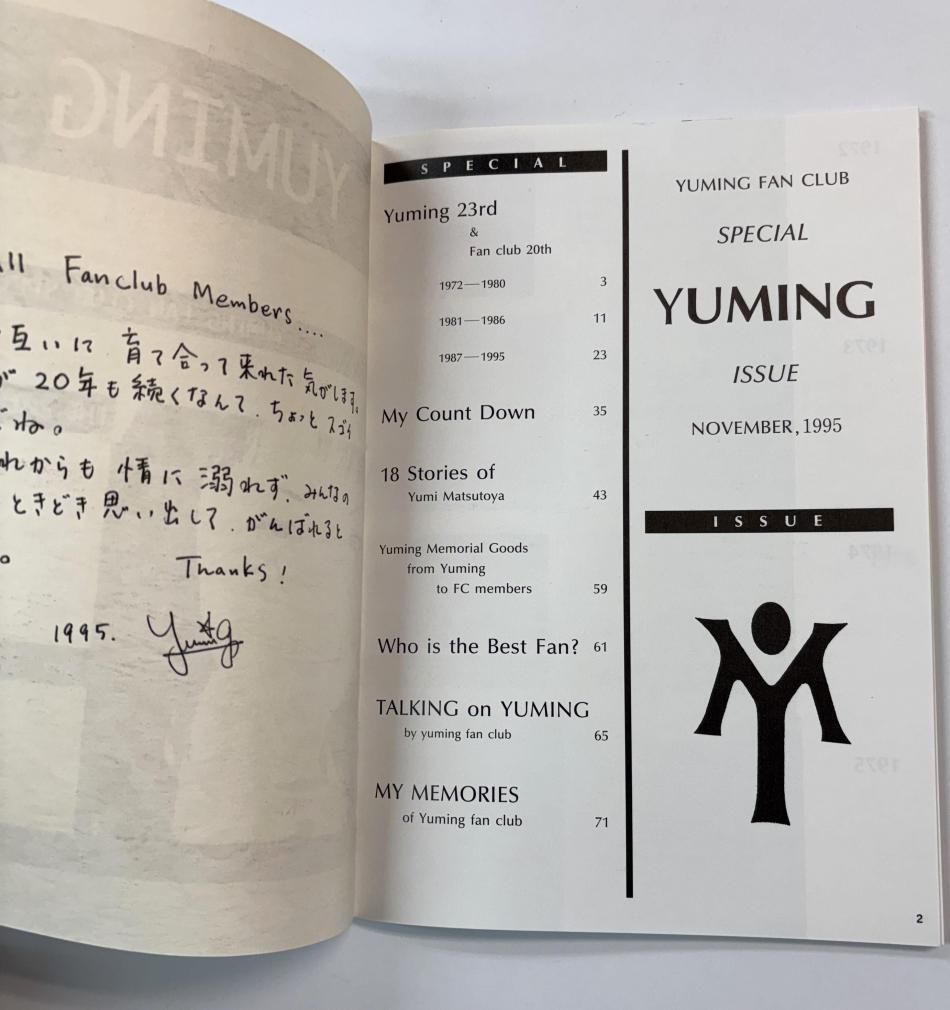 YUMING
Fanclub Members....
互いに 育て合って来れた気がします。
20年も続くなんて、ちょっとスゴイ
ね。
れからも 情に溺れず、みんなの
ときどき思い出して、がんばれると
。
Thanks!
1995. Yuming
SPECIAL
Yuming 23rd
&
Fan club 20th
1972—1980 3
1981—1986 11
1987—1995 23
My Count Down 35
18 Stories of
Yumi Matsutoya 43
Yuming Memorial Goods
from Yuming
to FC members 59
Who is the Best Fan? 61
TALKING on YUMING
by yuming fan club 65
MY MEMORIES
of Yuming fan club 71
YUMING FAN CLUB
SPECIAL
YUMING
ISSUE
NOVEMBER, 1995
ISSUE
1972
1973
1974
1975
2